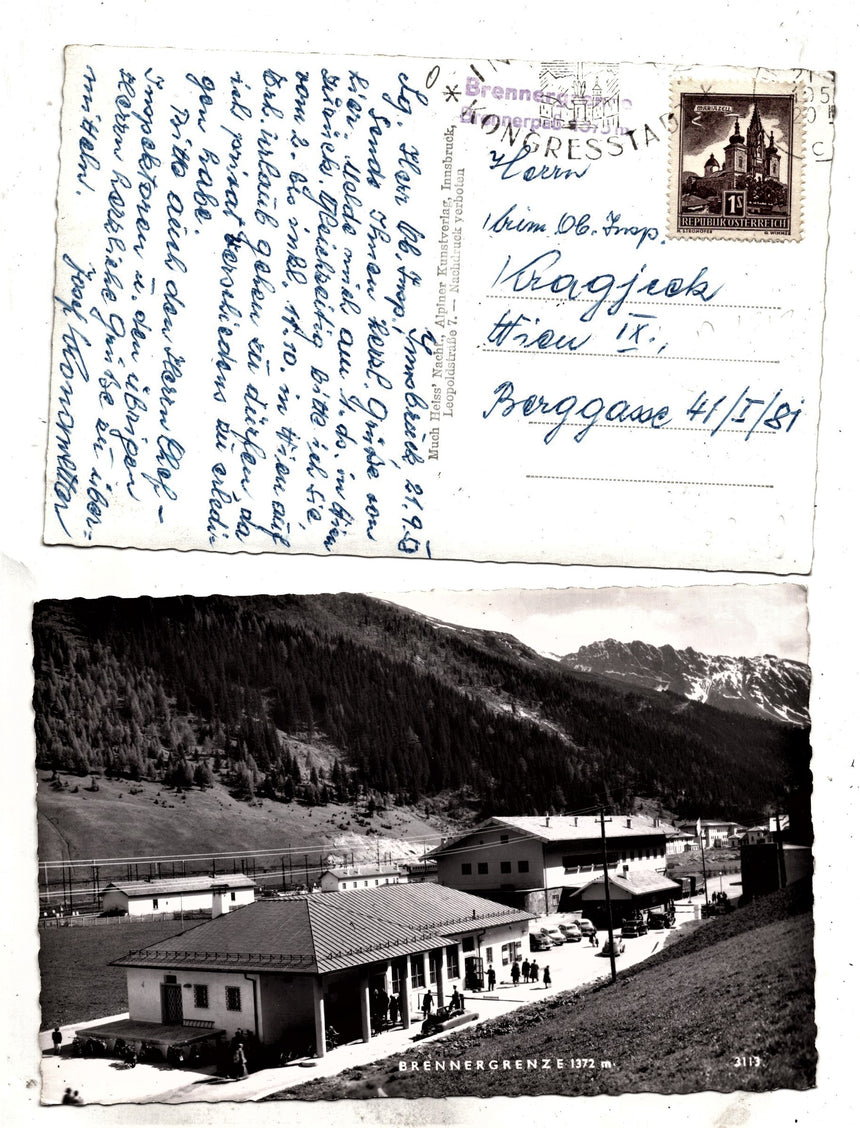 Innsbruck 21.9.59
Sg. Herr Ob. Insp.!
Sende Ihnen herzl. Grüße von
hier. Melde mich am 1. ds. in Wien
zurück. Gleichzeitig bitte ich Sie,
vom 2. bis inkl. 11.10. in Wien auf
Erh. urlaub gehen zu dürfen da
ich privat Verschiedenes zu erledi-
gen habe.
Bitte auch den Herrn Chef-
Inspektoren u. den übrigen
Herrn herzliche Grüße zu über-
mitteln.
Josef
Much Heiss' Nachf., Alpiner Kunstverlag, Innsbruck,
Leopoldstraße 7. — Nachdruck verboten
*
Brennergrenze
Brennerpaß
KONGRESSTADT
C
MARIAZELL
1S
REPUBLIK ÖSTERREICH
H. STROHOFER G. WIMMER
Herrn
krim. Ob. Insp.
Kragjeck
Wien IX.,
Berggasse 41/I/81
BRENNERGRENZE 1372 m.
3113